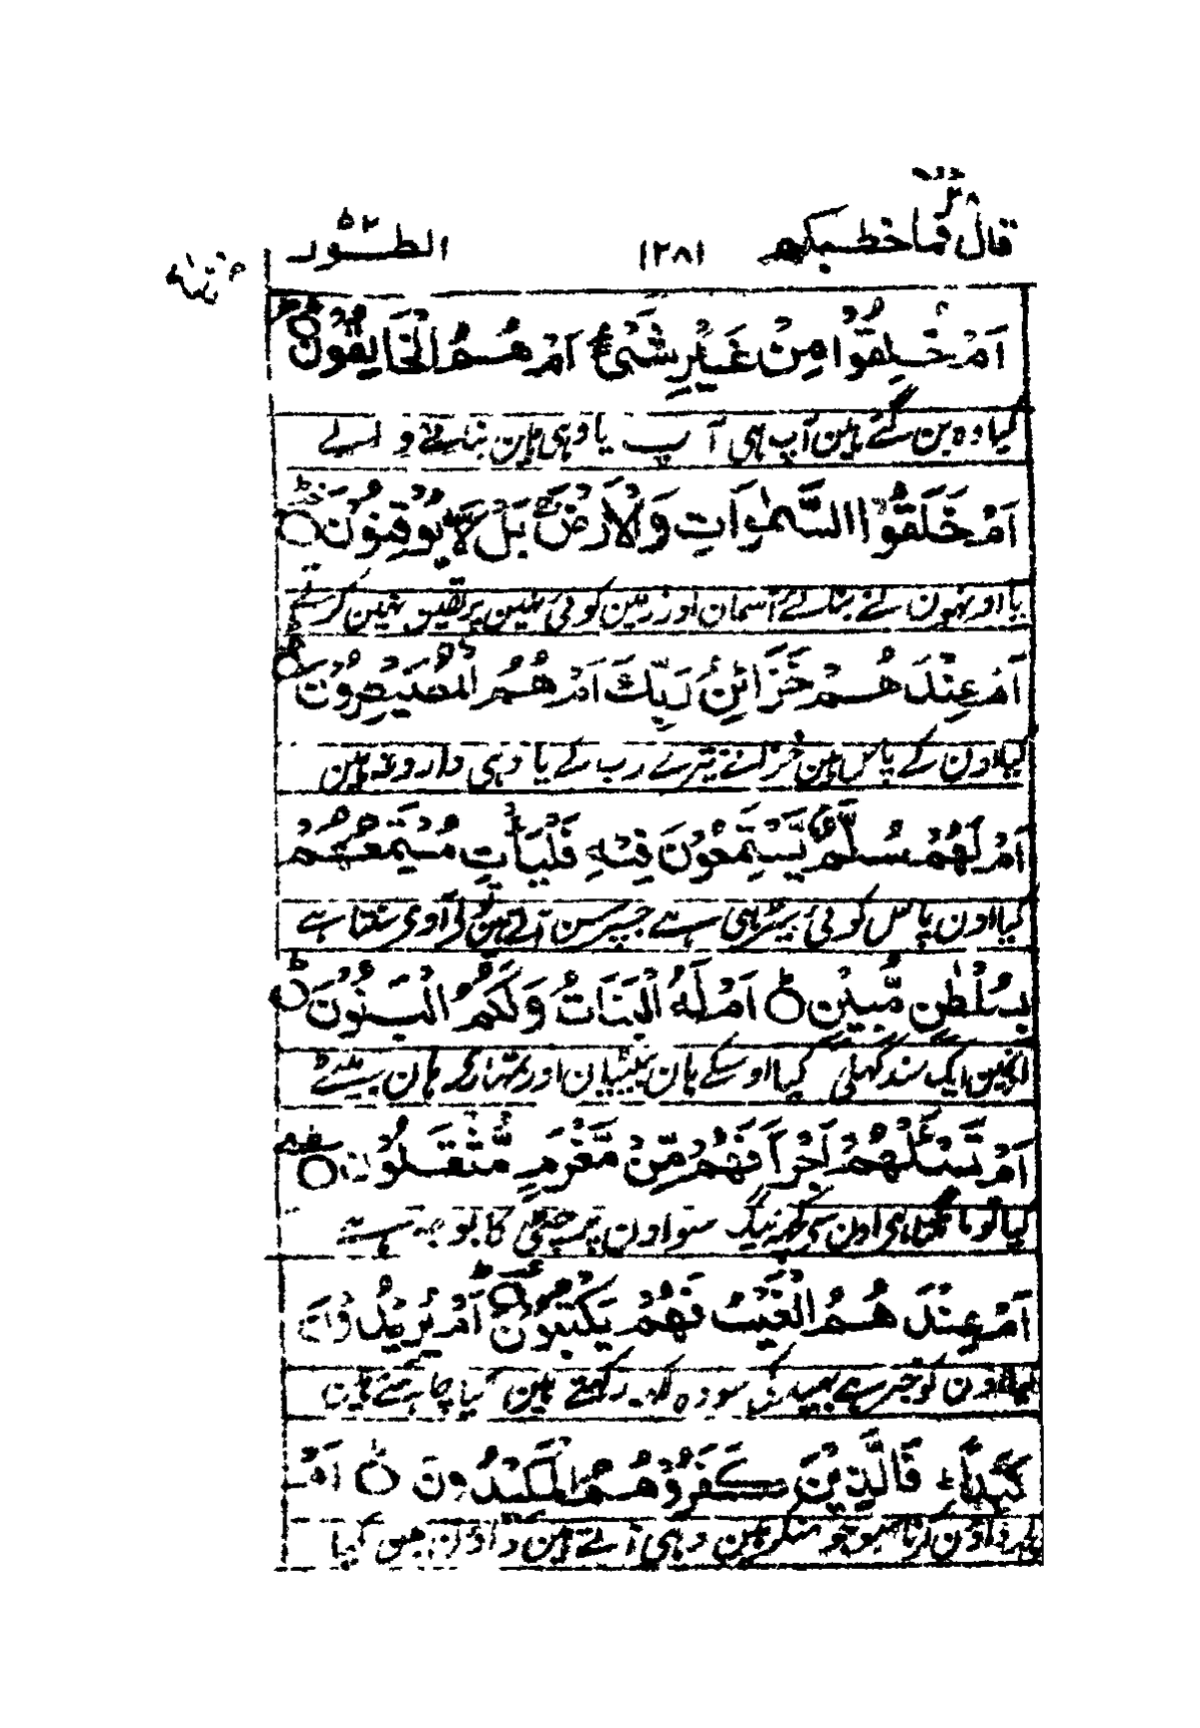 قال فما خطبكم ۱۲۸۱ الطّور ۵۲
اَمْ خُلِقُوْا مِنْ غَيْرِ شَیْءٍ اَمْ هُمُ الْخَالِقُوْنَ
کیا وہ بن گئے ہین آپ ہی آپ یا وہی ہین بنانے والے
اَمْ خَلَقُوا السَّمٰوَاتِ وَالْاَرْضَ بَلْ لَا يُوْقِنُوْنَ
یا اونہون نے بنائے آسمان اور زمین کوئی نہین پر یقین نہین کرتے
اَمْ عِنْدَ هُمْ خَزَائِنُ رَبِّكَ اَمْ هُمُ الْمُصَيْطِرُوْنَ
کیا اون کے پاس ہین خزانے تیرے رب کے یا وہی داروغہ ہین
اَمْ لَهُمْ سُلَّمٌ يَّسْتَمِعُوْنَ فِيْهِ فَلْيَاْتِ مُسْتَمِعُهُمْ
کیا اون پاس کوئی سیڑھی ہے جسپر سن آتے ہین تو لے آوے سنتا ہے
بِسُلْطٰنٍ مُّبِيْنٍ اَمْ لَهُ الْبَنَاتُ وَلَكُمُ الْبَنُوْنَ
ایک سند کھلی کیا اوسکے ہان بیٹیان اور تمہارے ہان بیٹے
اَمْ تَسْئَلُهُمْ اَجْرًا فَهُمْ مِّنْ مَّغْرَمٍ مُّثْقَلُوْنَ
کیا تو مانگتا ہی اون سے کچھ نیگ سو اون پر چٹی کا بوجھ ہے
اَمْ عِنْدَ هُمُ الْغَيْبُ فَهُمْ يَكْتُبُوْنَ اَمْ يُرِيْدُوْنَ
کیا اون کو خبر ہے بھید کی سو وہ لکھ رکھتے ہین کیا چاہتے ہین
كَيْدًا فَالَّذِيْنَ كَفَرُوْا هُمُ الْمَكِيْدُوْنَ اَمْ
داؤن کرنا سو جو منکر ہین وہی آتے ہین داؤن مین کیا